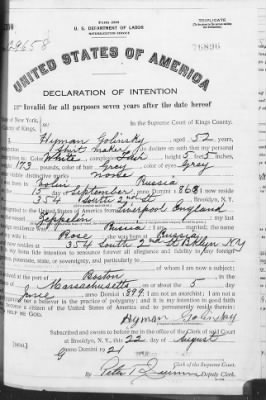 U. S. DEPARTMENT OF LABOR
NATURALIZATION SERVICE
TRIPLICATE
29658
76896
UNITED STATES OF AMERICA
DECLARATION OF INTENTION
Invalid for all purposes seven years after the date hereof
of New York,
County of Kings.
In the Supreme Court of Kings County.
Hyman Golinsky, aged 52 years,
occupation Shirt maker, do declare on oath that my personal
description is: Color White, complexion Fair, height 5 feet 5 inches,
173 pounds, color of hair Grey, color of eyes Grey
visible distinctive marks None
Russia
15 day of September, anno Domini 1868; I now reside
354 South 2nd st, Brooklyn, N.Y.
United States of America from Liverpool England
my last
residence was Russia; I am married;
Rose; she was born at Russia
at 354 South 2nd St Bklyn NY
bona fide intention to renounce forever all allegiance and fidelity to any foreign
potentate, state, or sovereignty, and particularly to
of whom I am now a subject;
at the port of Boston
Massachusetts on or about the 5 day
June anno Domini 1899; I am not an anarchist; I am not a
nor a believer in the practice of polygamy; and it is my intention in good faith
to become a citizen of the United States of America and to permanently reside therein:
HELP ME GOD.
Hyman Golinsky
Subscribed and sworn to before me in the office of the Clerk of said Court
at Brooklyn, N.Y., this 22 day of August
anno Domini 192
[SEAL]
Clerk of the Supreme Court.
Deputy Clerk.